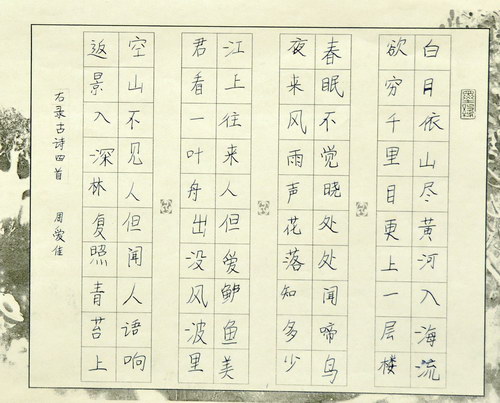 白日依山尽黄河入海流
欲穷千里目更上一层楼
春眠不觉晓处处闻啼鸟
夜来风雨声花落知多少
江上往来人但爱鲈鱼美
君看一叶舟出没风波里
空山不见人但闻人语响
返景入深林复照青苔上
右录古诗四首 周爱佳